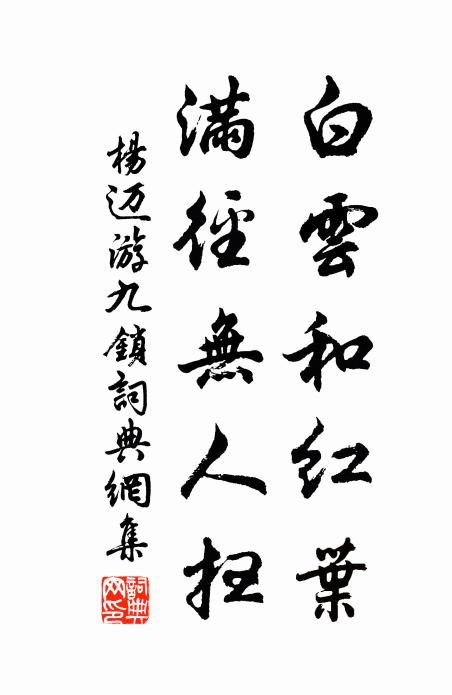 白雲和紅葉
滿徑無人掃
楊迈游九鎖詞典網集
詞典網印